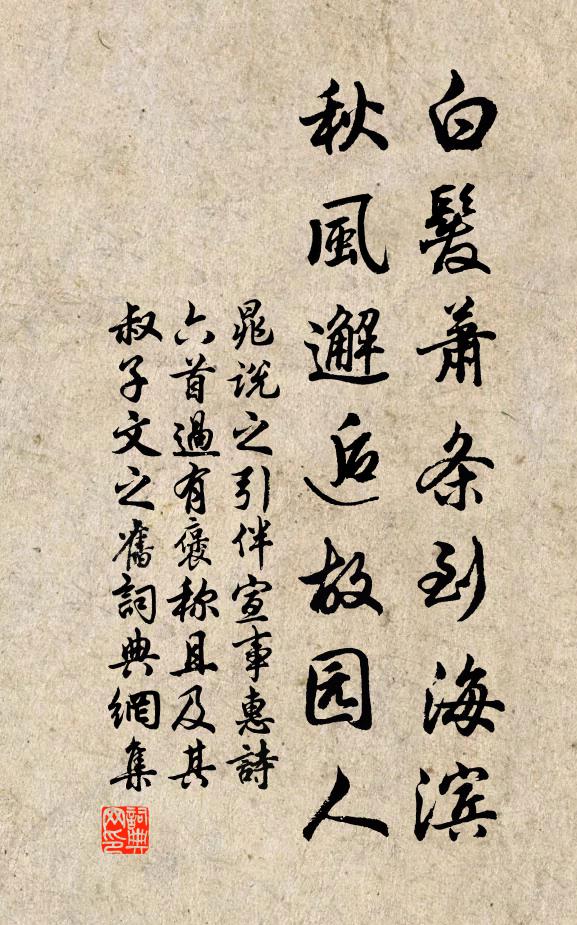 白髮萧条到海滨
秋風邂逅故园人
晁说之引伴宣事惠詩
六首過有褒称且及其
叔子文之舊詞典網集
詞典网印